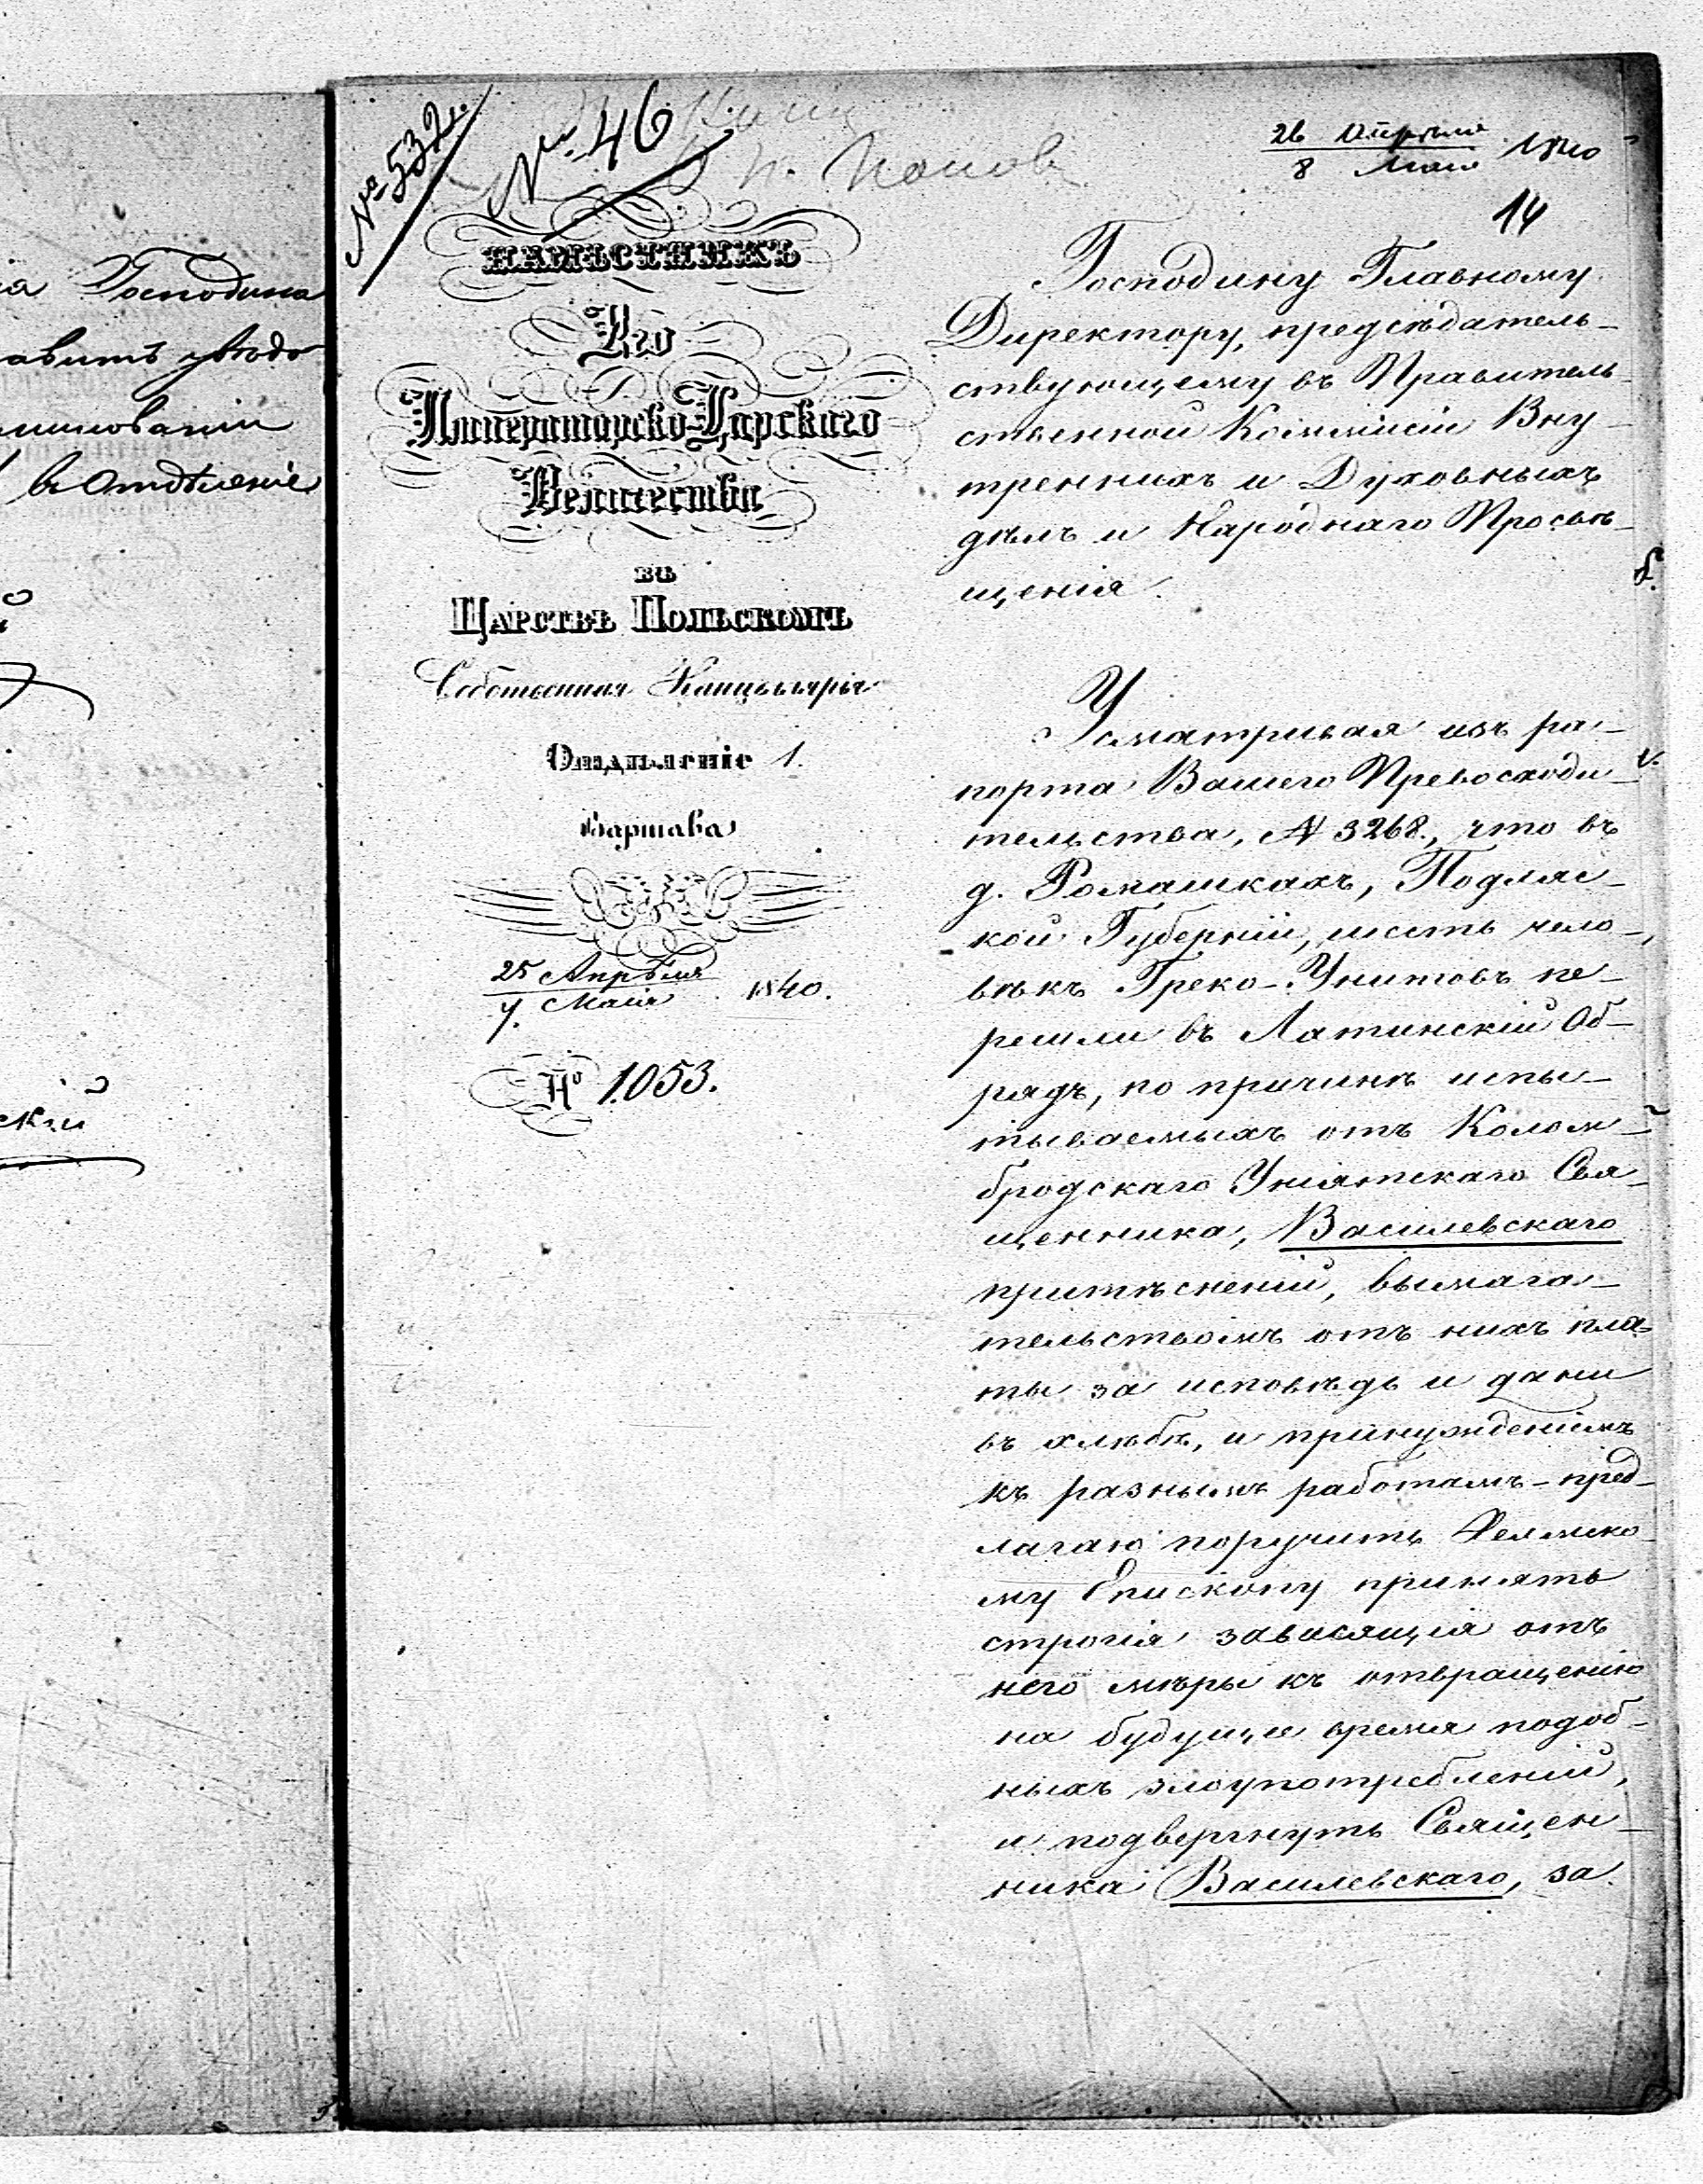 а Господина
авитъ увѣдо
миловании
въ Отдѣленіе
скій
№ 532
№ 46
Попов
26 Апрѣля
8 Маія 1840
14
НАМѢСТНИКЪ
Его
Императорско-Царскаго
Величества
въ
Царствѣ Польскомъ
Собственная Канцелярія
Отдѣленіе 1.
Варшава
25 Апрѣля
7 Маія 1840.
№ 1053.
Господину Главному
Директору, предсѣдатель-
ствующему въ Правитель-
ственной Коммисіи Вну-
треннихъ и Духовныхъ
дѣлъ и Народнаго Просвѣ-
щенія.
Усматривая изъ ра-
порта Вашего Превосходи-
тельства, № 3268., что въ
д. Ромашкахъ, Подляс-
кой Губерніи, шесть чело-
вѣкъ Греко-Унитовъ пе-
решли въ Латинскій Об-
рядъ, по причинѣ испы-
тываемыхъ отъ Колом-
бродскаго Уніятскаго Свя-
щенника, Василевскаго
притѣсненій, вымога-
тельствомъ отъ нихъ пла-
ты за исповѣдь и дани
въ хлѣбѣ, и принужденіемъ
къ разнымъ работамъ - пред-
лагаю поручить Хелмско-
му Епископу принять
строгія зависящія отъ
него мѣры къ отвращенію
на будущее время подоб-
ныхъ злоупотребленій,
и подвергнуть Священ-
ника Василевскаго, за